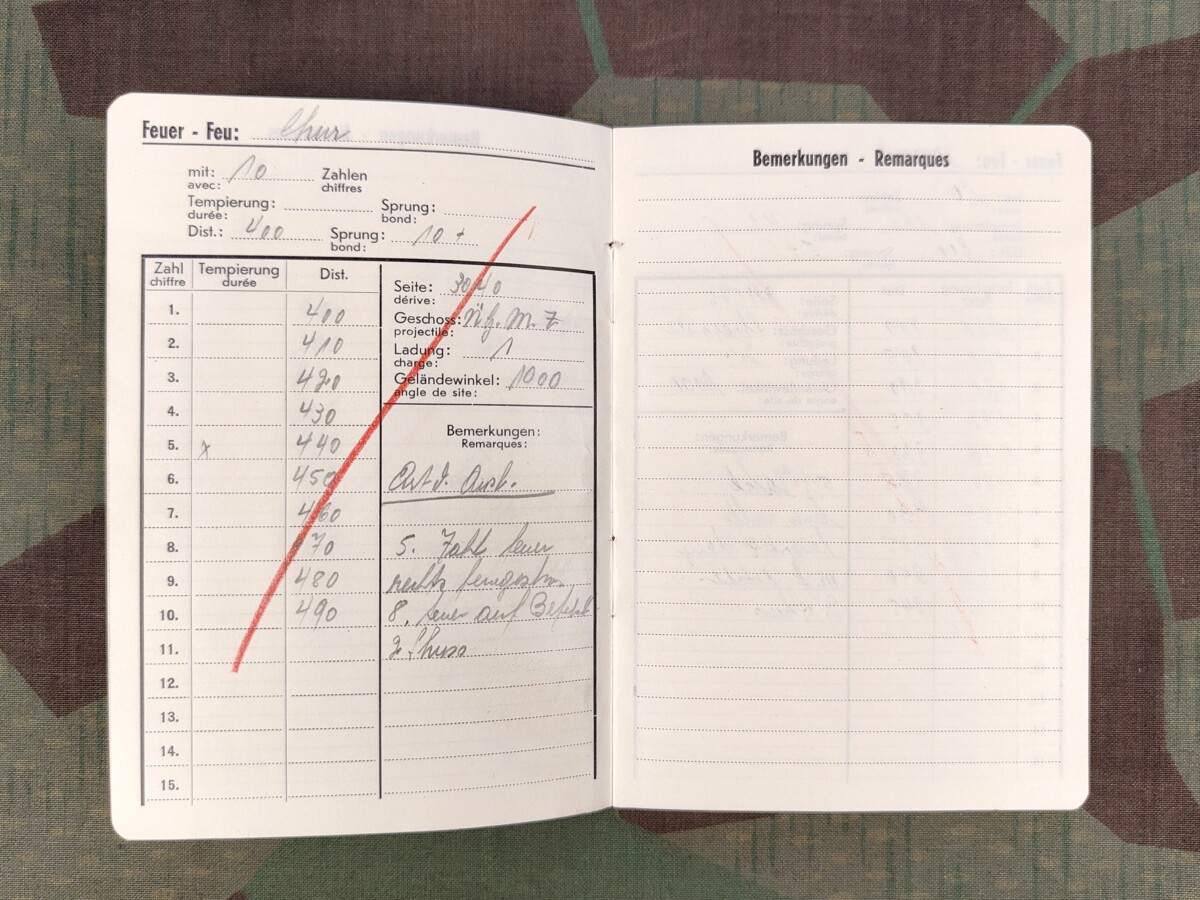 Feuer - Feu: Chur
mit: 10 Zahlen
avec: chiffres
Tempierung: Sprung:
durée: bond:
Dist.: 400 Sprung: 10 +
bond:
Zahl Tempierung Dist.
chiffre durée
1. 400
2. 410
3. 420
4. 430
5. x 440
6. 450
7. 460
8. 470
9. 480
10. 490
11.
12.
13.
14.
15.
Seite: 3040
dérive:
Geschoss: M. Z
projectile:
Ladung: 1
charge:
Geländewinkel: 1000
angle de site:
Bemerkungen:
Remarques:
5. Zahl Feuer
rechts
8. Feuer auf Befehl
2 Schuss
Bemerkungen - Remarques